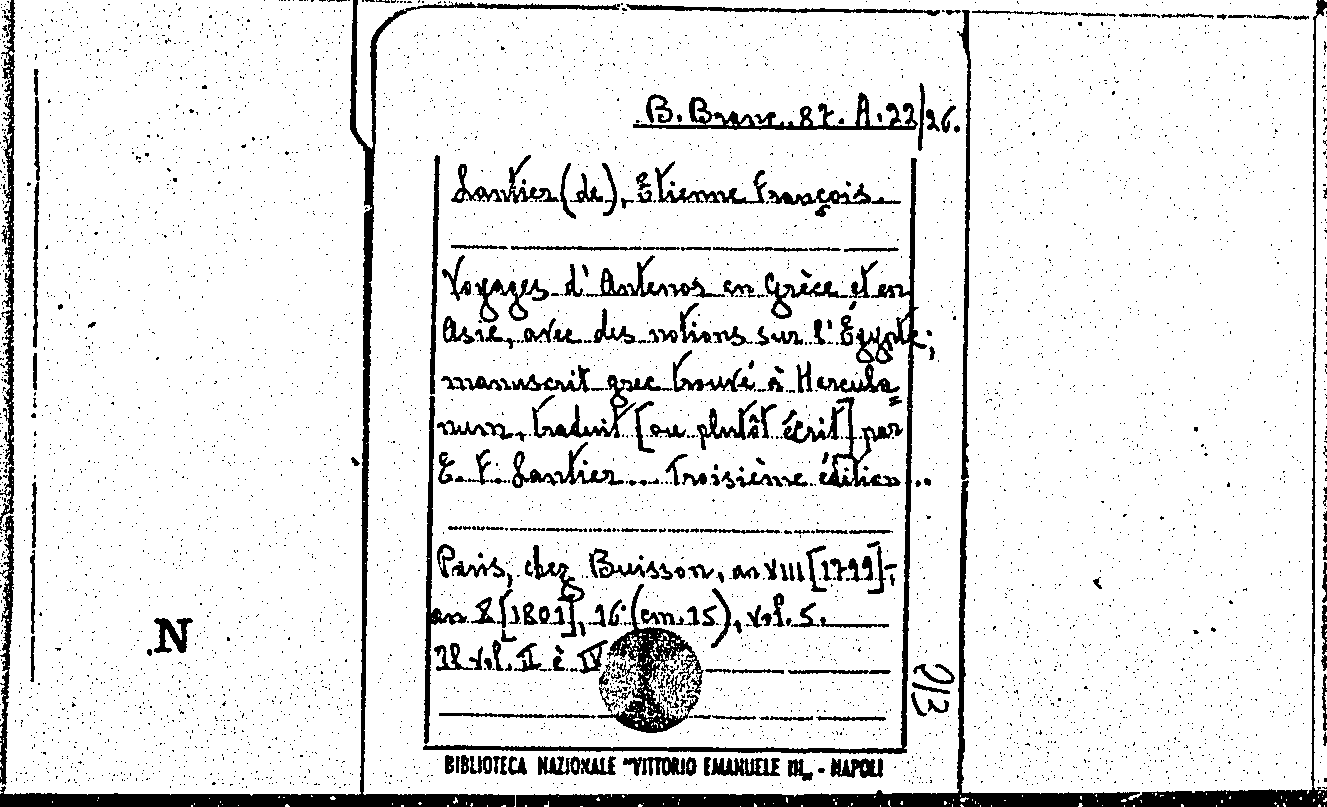 B. Branc. 87. A. 22/26.
Lantier (de), Etienne François.
Voyages d'Antenor en Grèce et en
Asie, avec des notions sur l'Égypte;
manuscrit grec trouvé à Hercula=
num, traduit [ou plutôt écrit] par
E. F. Lantier... Troisième édition...
Paris, chez Buisson, an VIII [1799]-;
an X [1801], 16° (cm. 15), vol. 5.
Il vol. II è IV
2/3
N
BIBLIOTECA NAZIONALE "VITTORIO EMANUELE III„ - NAPOLI